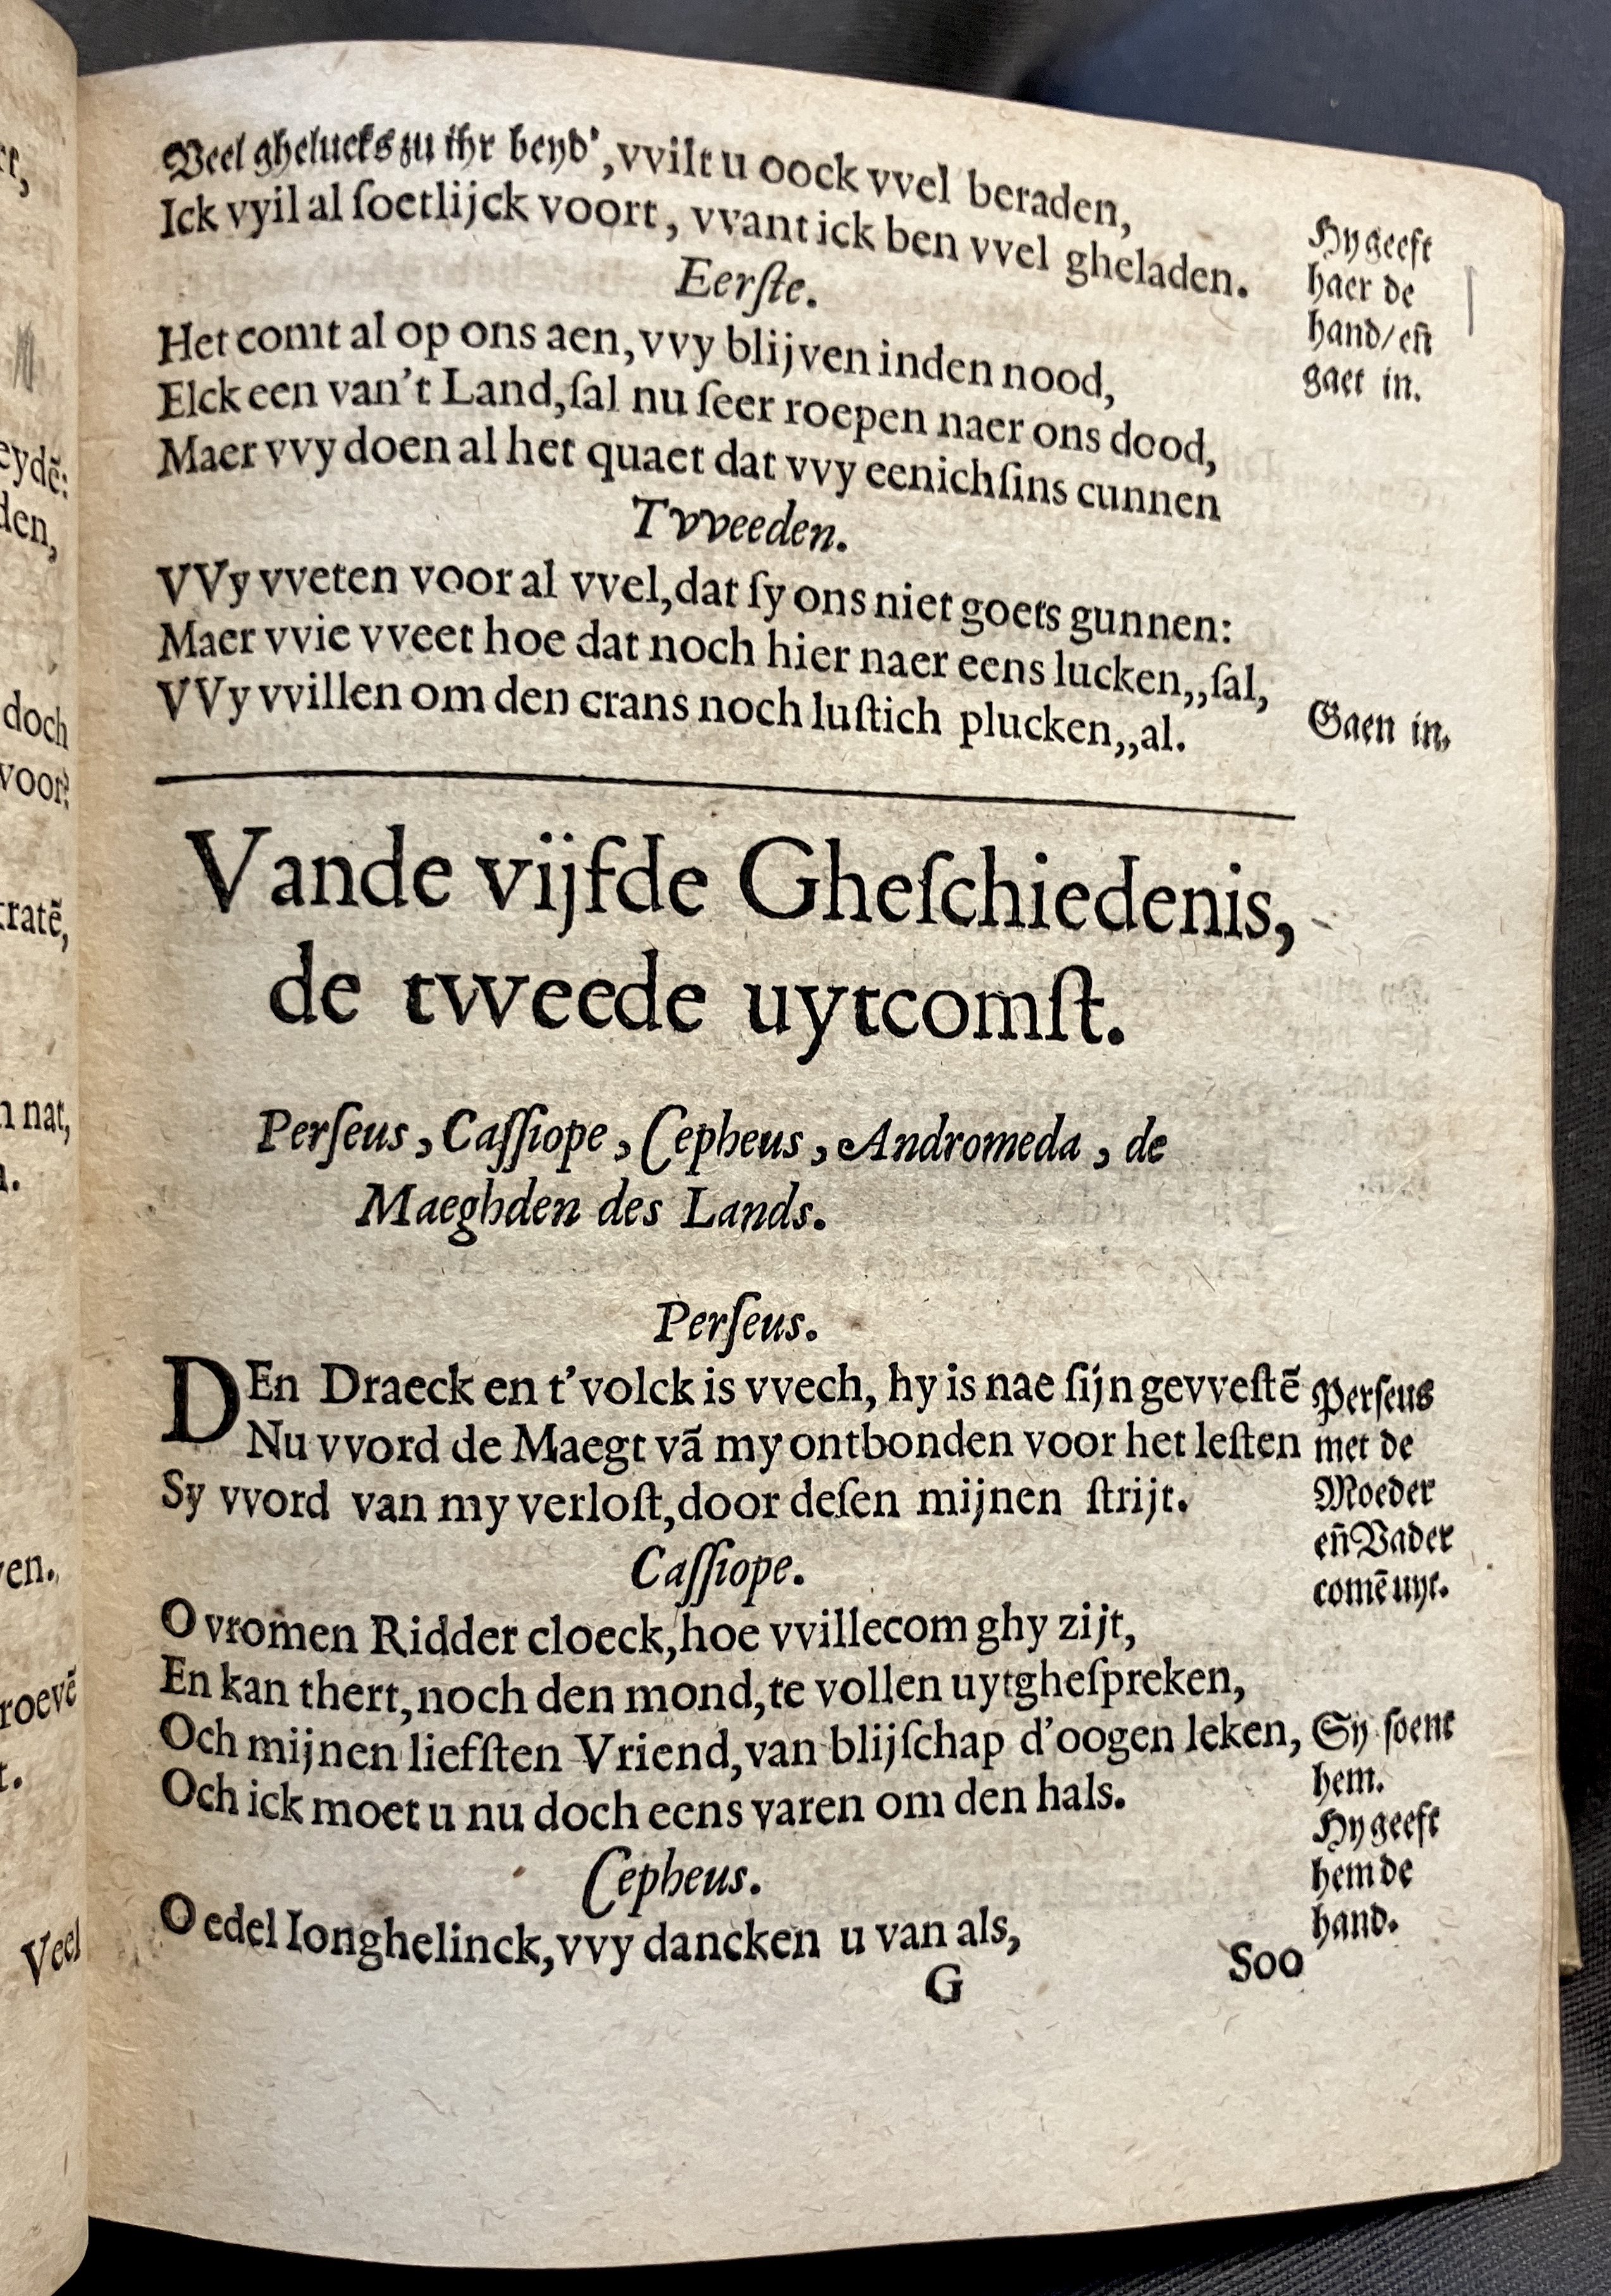 Veel ghelucks zu ihr beyd', vvilt u oock vvel beraden,
Ick vyil al ſoetlijck voort, vvant ick ben vvel gheladen.
Hy geeft
haer de
hand/ en̄
gaet in.
Eerſte.
Het comt al op ons aen, vvy blijven inden nood,
Elck een van't Land, ſal nu ſeer roepen naer ons dood,
Maer vvy doen al het quaet dat vvy eenichſins cunnen
Tvveeden.
VVy vveten voor al vvel, dat ſy ons niet goets gunnen:
Maer vvie vveet hoe dat noch hier naer eens lucken,,ſal,
VVy vvillen om den crans noch luſtich plucken,,al.
Gaen in.
Vande vijfde Gheſchiedenis,
de tweede uytcomſt.
Perſeus, Caſſiope, Cepheus, Andromeda, de
Maeghden des Lands.
Perſeus.
DEn Draeck en t'volck is vvech, hy is nae ſijn gevveſtē
Nu vvord de Maegt vā my ontbonden voor het leſten
Sy vvord van my verloſt, door deſen mijnen ſtrijt.
Perſeus
met de
Moeder
en̄ Vader
comē uyt.
Caſſiope.
O vromen Ridder cloeck, hoe vvillecom ghy zijt,
En kan thert, noch den mond, te vollen uytgheſpreken,
Och mijnen liefſten Vriend, van blijſchap d'oogen leken,
Och ick moet u nu doch eens varen om den hals.
Sy ſoent
hem.
Hy geeft
hem de
hand.
Cepheus.
O edel Ionghelinck, vvy dancken u van als,
G
Soo
eydē:
den,
doch
voor?
tratē,
n nat,
ven.
roevē
Veel